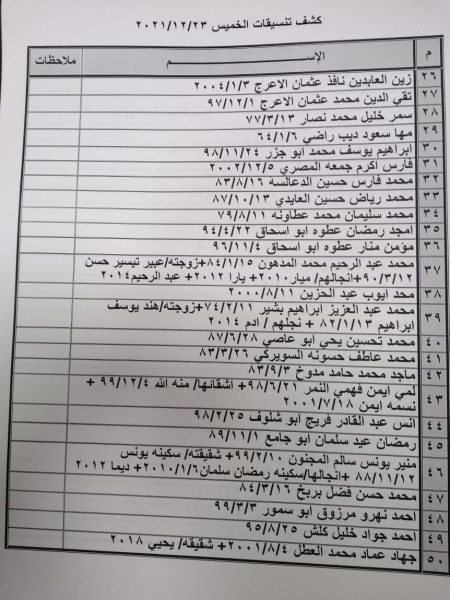 كشف تنسيقات الخميس ٢٠٢١/١٢/٢٣
م الإســـــم ملاحظات
٢٦ زين العابدين نافذ عثمان الاعرج ٢٠٠٤/١/٣
٢٧ تقي الدين محمد عثمان الاعرج ٩٧/١٢/١
٢٨ سمر خليل محمد نصار ٧٧/٣/١٣
٢٩ مها سعود ديب راضي ٦٤/١/٦
٣٠ ابراهيم يوسف محمد ابو جزر ٩٨/١١/٢٤
٣١ فارس اكرم جمعه المصري ٢٠٠٢/١٢/٥
٣٢ محمد فارس حسين الدعالسه ٨٣/٨/١٦
٣٣ محمد رياض حسين العايدي ٨٧/١٠/١٣
٣٤ محمد سليمان محمد عطاونه ٧٩/٨/١١
٣٥ امجد رمضان عطوه ابو اسحاق ٩٤/٤/٢٢
٣٦ مؤمن منار عطوه ابو اسحاق ٩٦/١١/٤
٣٧ محمد عبد الرحيم محمد المدهون ٨٤/١/١٥+زوجته/عبير تيسير حسن
٩٠/٣/١٢+انجالهم/ ميار٢٠١٠+ يارا ٢٠١٢+ عبد الرحيم٢٠١٤
٣٨ محد ايوب عبد الحزين ٢٠٠٠/٨/١١
٣٩ محمد عبد العزيز ابراهيم بشير ٧٤/٢/١١+زوجته/هند يوسف
ابراهيم ٨٢/١/١٣ + نجلهم / ادم ٢٠١٤
٤٠ محمد تحسين يحي ابو عاصي ٨٧/٦/٢٨
٤١ محمد عاطف حسونه السويركي ٨٣/٣/٢٦
٤٢ ماجد محمد حامد مدوخ ٨٣/٩/٣
٤٣ لمي ايمن فهمي النمر ٩٨/٦/٢١+ اشقائها/ منه الله ٩٩/١٢/٤ +
نسمه ايمن ٢٠٠١/٧/١٨
٤٤ انس عبد القادر فريج ابو شلوف ٩٨/٢/٢٥
٤٥ رمضان عيد سلمان ابو جامع ٨٩/١١/١
٤٦ منير يونس سالم المجنون ٩٩/٢/١٠+ شقيقته/ سكينه يونس
٨٨/١١/١٢ +انجالها/سكينه رمضان سلمان٢٠١٠/١/٦+ ديما ٢٠١٢
٤٧ محمد حسن فضل بربخ ٨٤/٣/١٦
٤٨ احمد نهرو مرزوق ابو سمور ٩٩/٣/٣
٤٩ احمد جواد خليل كلش ٩٥/٨/٢٥
٥٠ جهاد عماد محمد العطل ٢٠٠١/٨/٤+ شقيقه/ يحيي ٢٠١٨